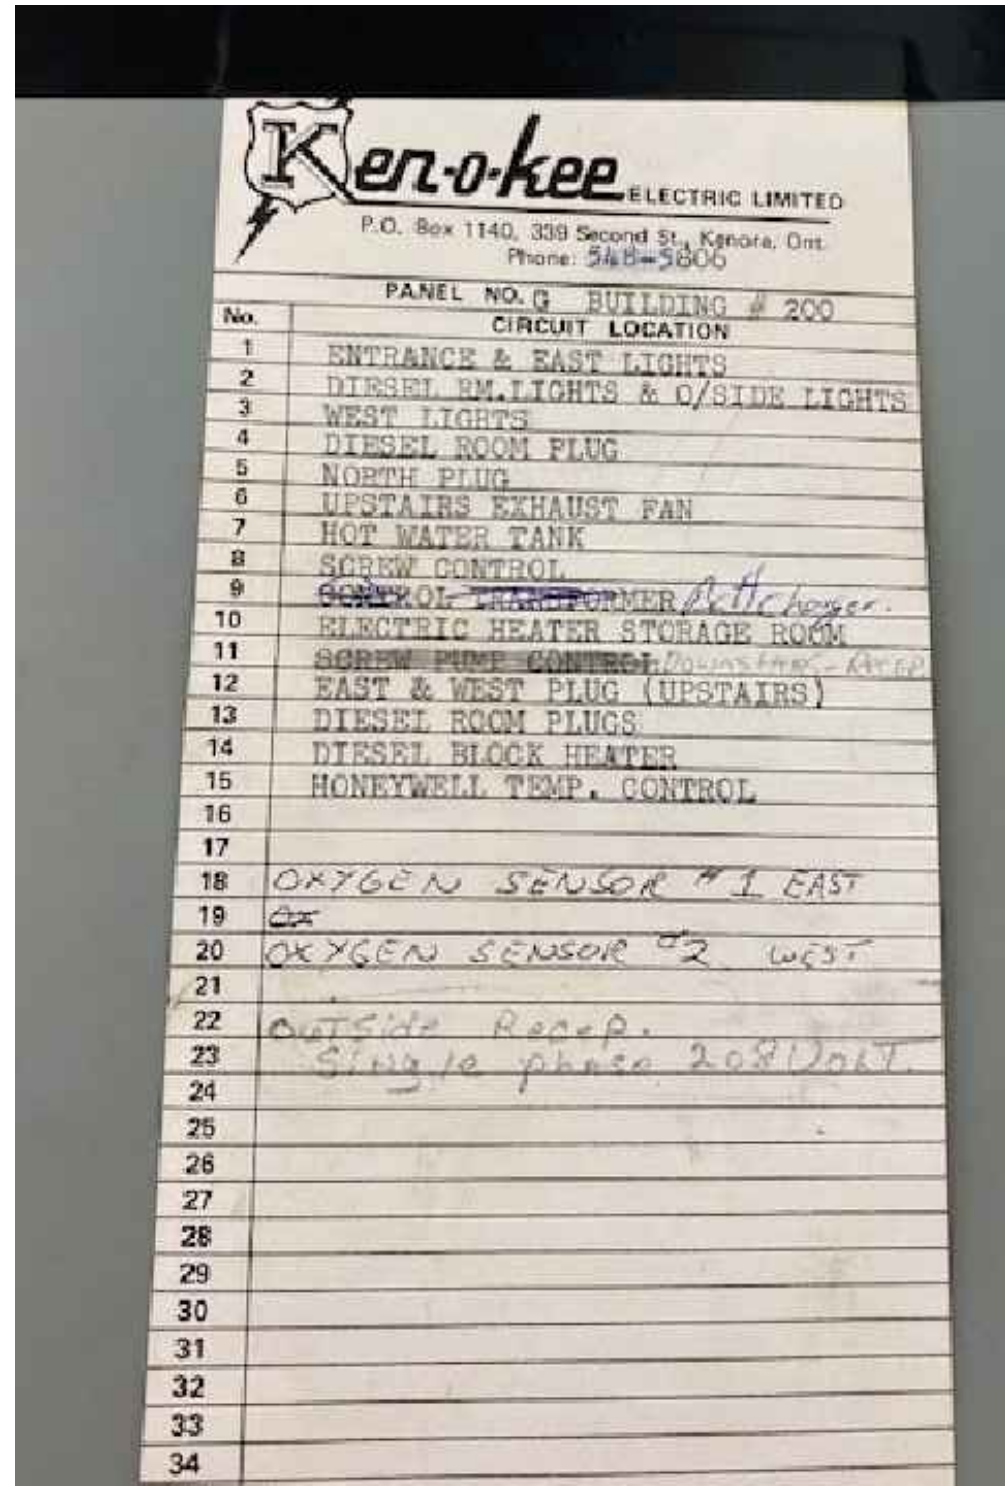 Ken-o-kee ELECTRIC LIMITED
P.O. Box 1140, 339 Second St., Kenora, Ont.
Phone: 548-5806
PANEL NO. G BUILDING # 200
No. CIRCUIT LOCATION
1 ENTRANCE & EAST LIGHTS
2 DIESEL RM.LIGHTS & O/SIDE LIGHTS
3 WEST LIGHTS
4 DIESEL ROOM PLUG
5 NORTH PLUG
6 UPSTAIRS EXHAUST FAN
7 HOT WATER TANK
8 SCREW CONTROL
9 CONTROL TRANSFORMER Batt charger.
10 ELECTRIC HEATER STORAGE ROOM
11 SCREW PUMP CONTROL Downstairs - Recep
12 EAST & WEST PLUG (UPSTAIRS)
13 DIESEL ROOM PLUGS
14 DIESEL BLOCK HEATER
15 HONEYWELL TEMP. CONTROL
16
17
18 OXYGEN SENSOR # 1 EAST
19 OX
20 OXYGEN SENSOR #2 WEST
21
22 OUTSide Recep.
23 Single phase 208 VOLT.
24
25
26
27
28
29
30
31
32
33
34